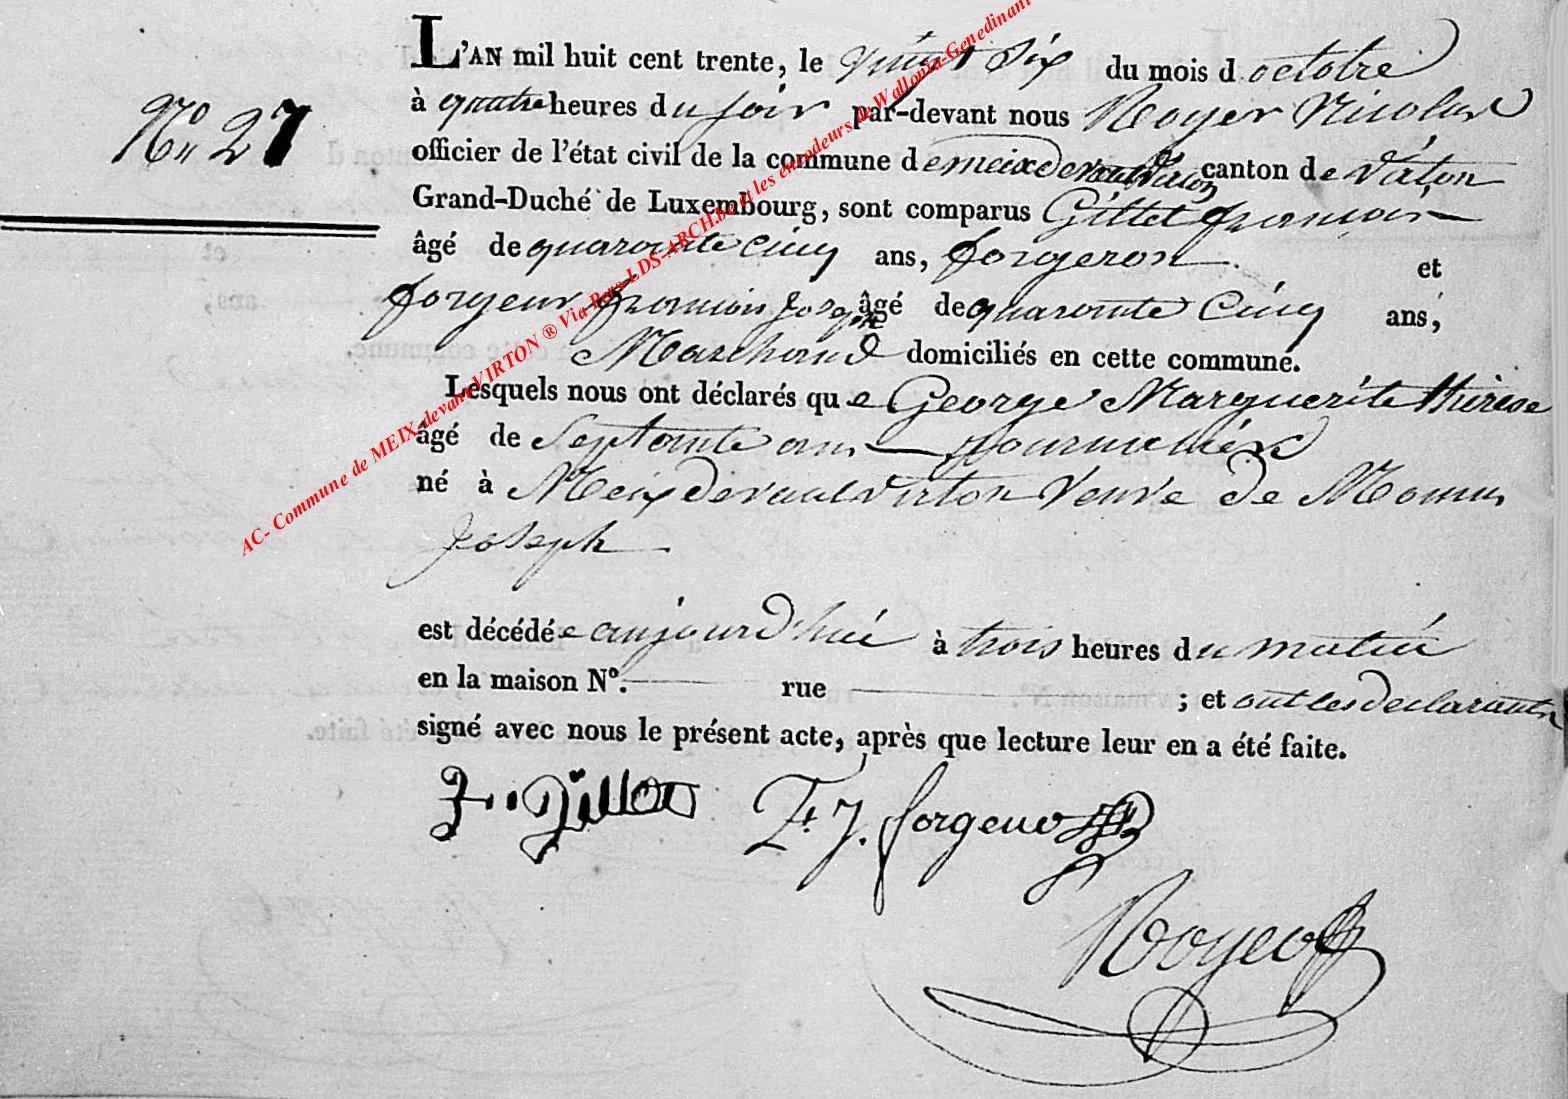 L'AN mil huit cent trente, le vingt six du mois d octobre
N° 27
à quatre heures du soir par-devant nous Royer Nicolas
officier de l'état civil de la commune de meix devant virton canton de virton
Grand-Duché de Luxembourg, sont comparus Gillet françois
âgé de quarante cinq ans, forgeron et
forgeur françois Joseph âgé de quarante cinq ans,
Marchand domiciliés en cette commune.
Lesquels nous ont déclarés que George Marguerite thérèse
âgé de septante ans journalière
né à Meix devant virton veuve de
Joseph
est décédée aujourd'hui à trois heures du matin
en la maison N°. rue ; et ont les declarants
signé avec nous le présent acte, après que lecture leur en a été faite.
F. J. forgeur
Royer
AC- Commune de MEIX devant VIRTON ® Via Pers LDS-ARCH.be et les encodeurs de Wallonia-Genedinant